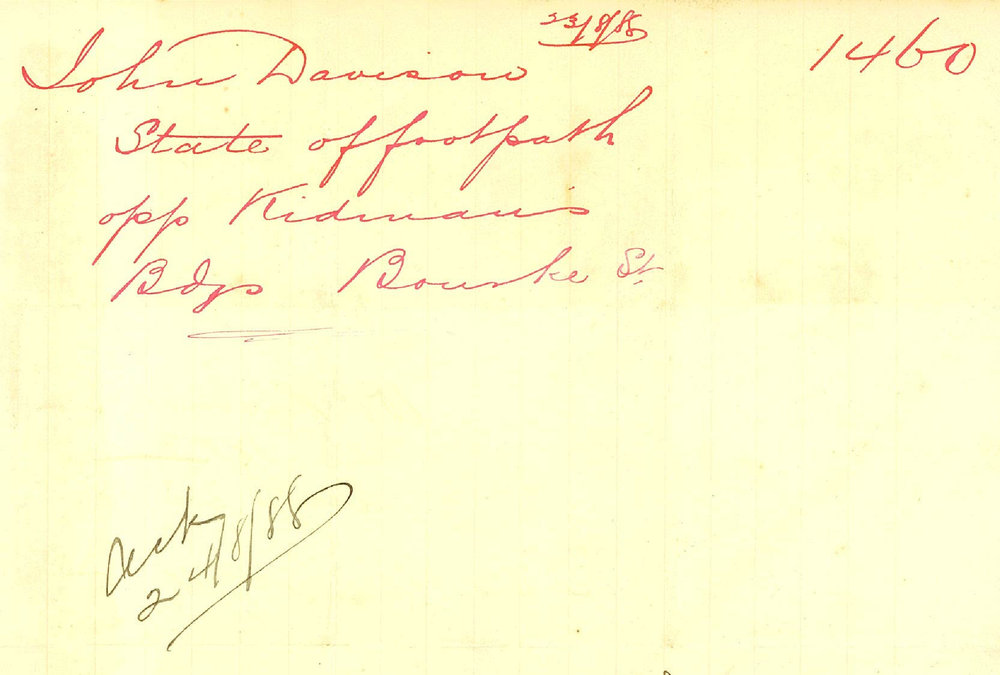 23/8/88
1460
John Davison
State of footpath
opp Kidmans
Bdgs Bourke St.
Ack
24/8/88